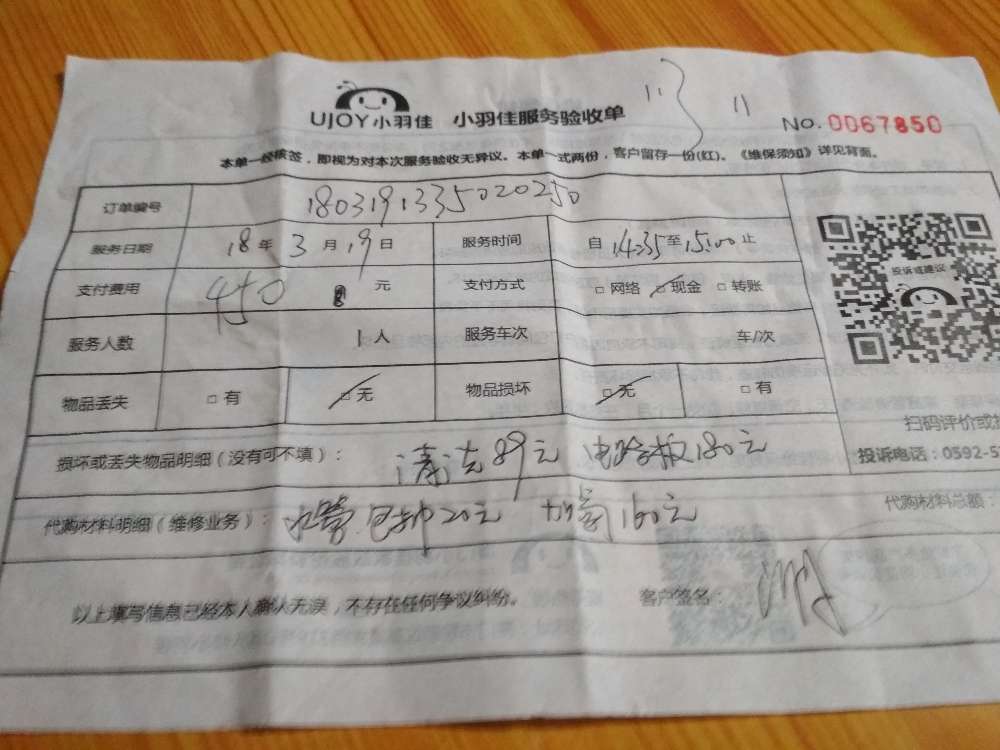 UJOY小羽佳 小羽佳服务验收单
No. 0067850
本单一经核签，即视为对本次服务验收无异议。本单一式两份，客户留存一份(红)。《维保须知》详见背面。
订单编号 1803191335020250
服务日期 18 年 3 月 19 日 服务时间 自 14:35 至 15:00 止
投诉或建议
支付费用 450 元 支付方式 □ 网络 □ 现金 □ 转账
服务人数 1 人 服务车次 车/次
物品丢失 □ 有 □ 无 物品损坏 □ 无 □ 有
扫码评价或
损坏或丢失物品明细（没有可不填）： 清洁89元 电路板180元
投诉电话：0592-5
代购材料明细（维修业务）： 20元 加氟160元
代购材料总额：
以上填写信息已经本人确认无误，不存在任何争议纠纷。 客户签名：